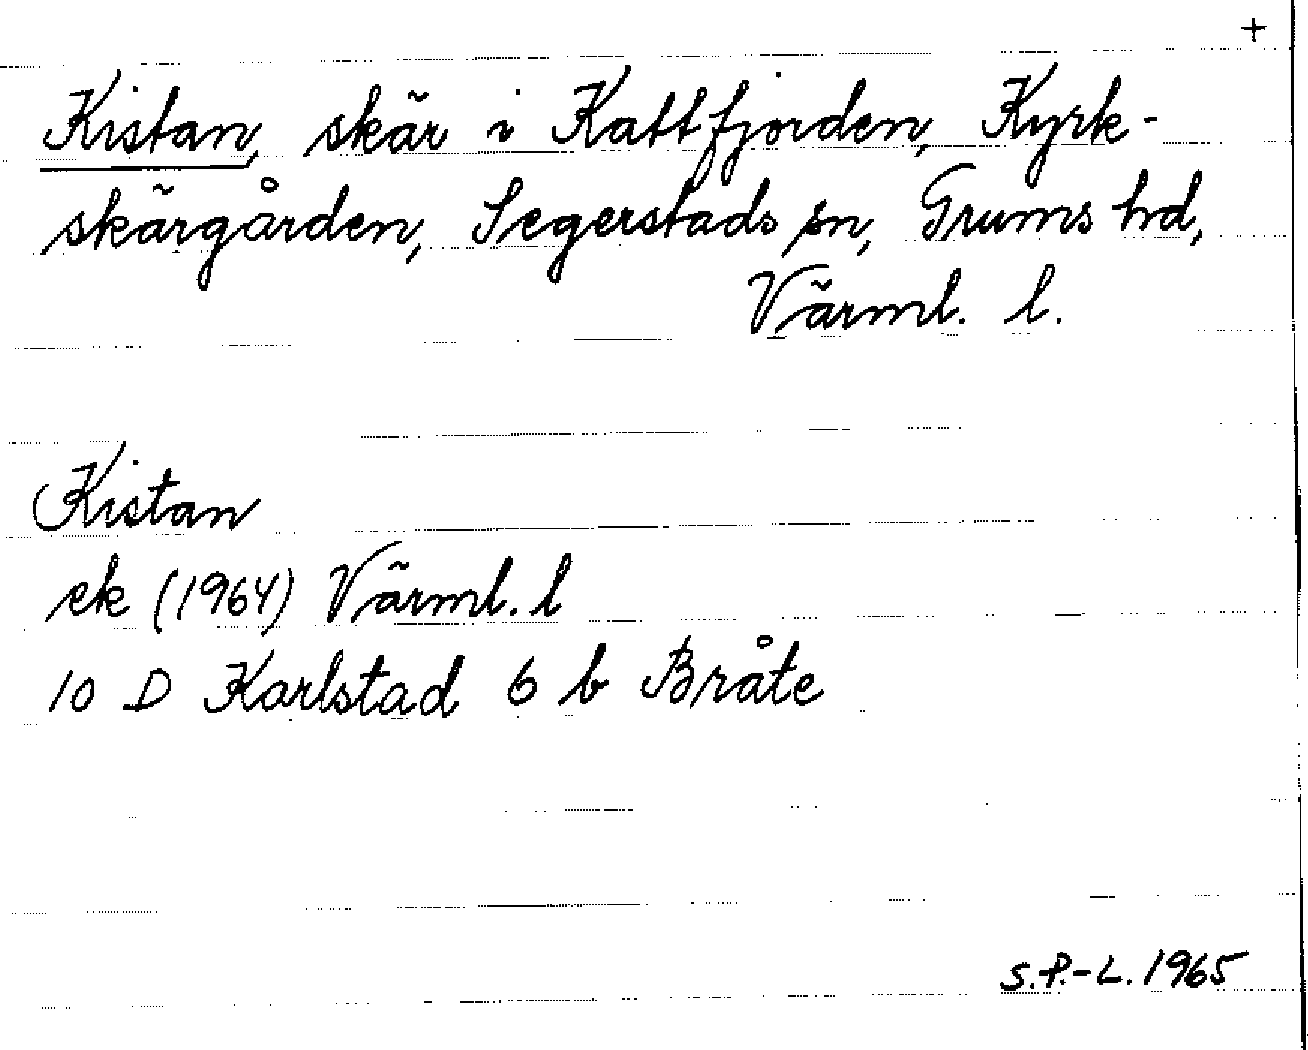 +
Kistan, skär i Kattfjorden, Kyrk-
skärgården, Segerstads sn, Grums hd,
Värml. l.
Kistan
ek (1964) Värml. l
10 D Karlstad 6 b Bråte
S.P.-L. 1965